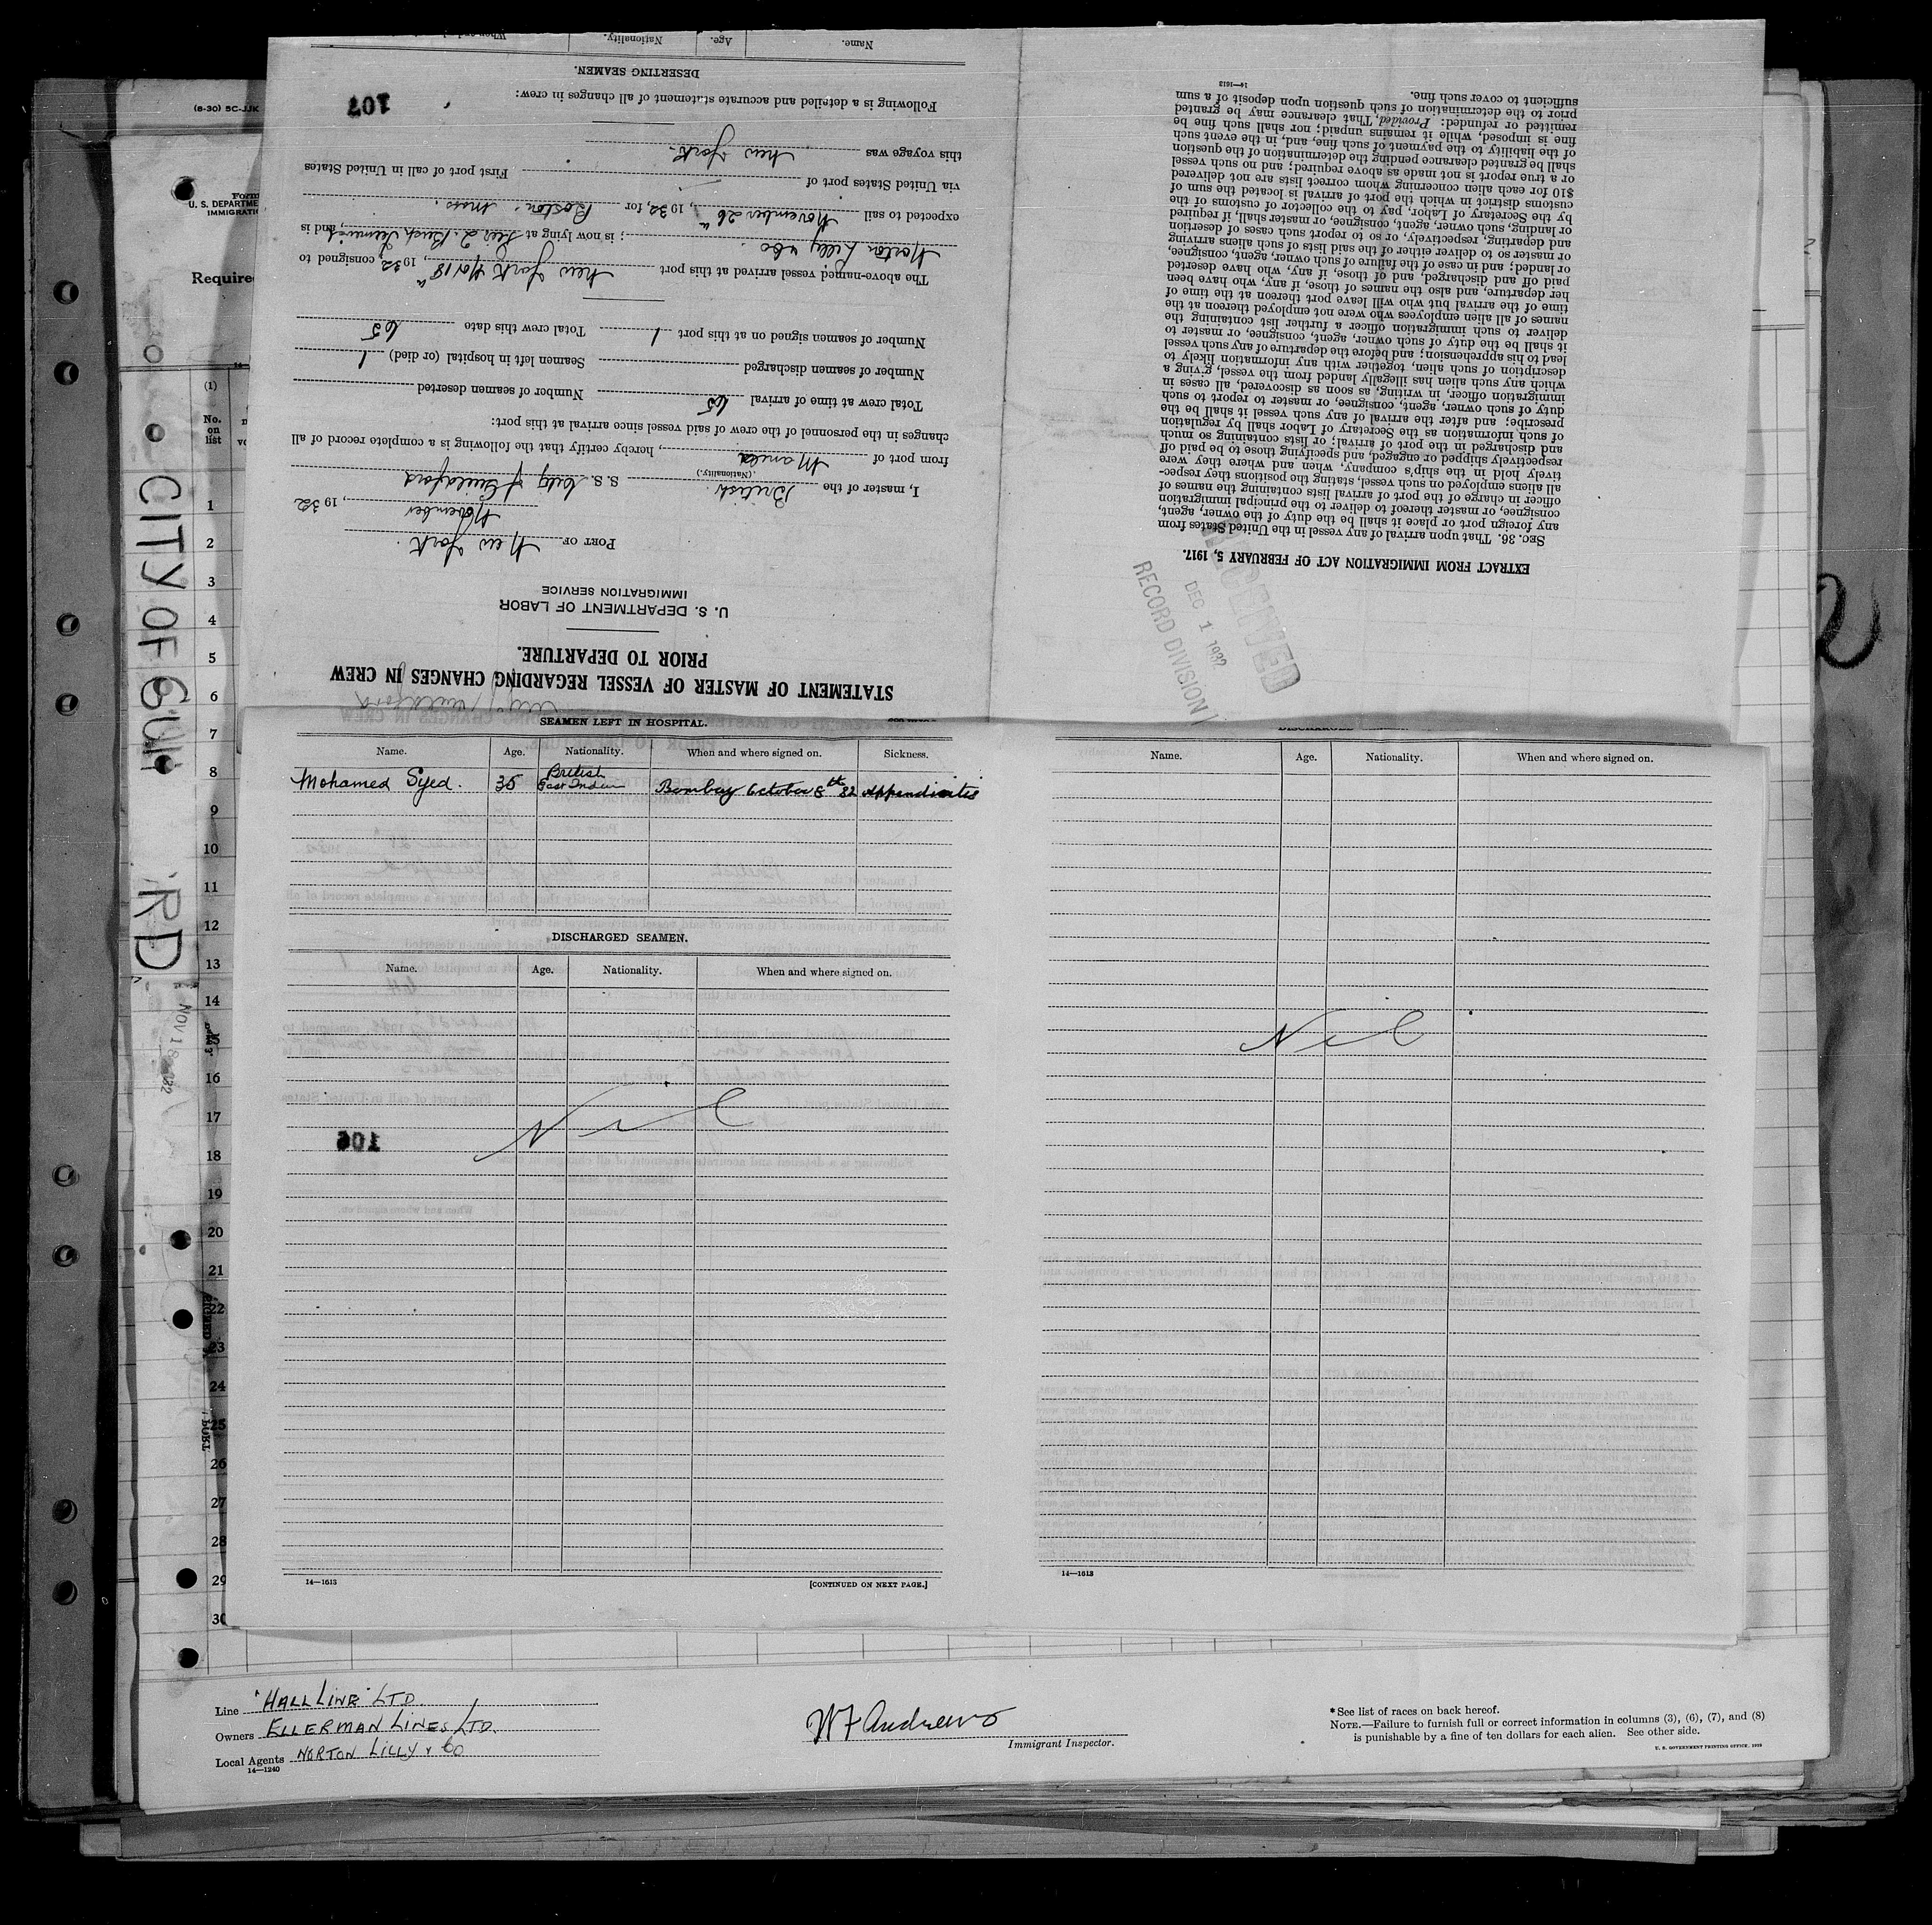 (8-30) 5C-JJK
U. S. DEPARTME
IMMIGRATIO
Require
(1)
No.
on
list
1
2
3
4
5
6
7
8
9
10
11
12
13
14
16
17
18
19
20
21
22
23
24
25
26
27
28
29
30
CITY OF GUI
RD
NOV 18 1932
STATEMENT OF MASTER OF VESSEL REGARDING CHANGES IN CREW
PRIOR TO DEPARTURE.
U. S. DEPARTMENT OF LABOR
IMMIGRATION SERVICE
PORT OF New York.
November, 1932
I, master of the British S. S. City of Guildford
(Nationality)
from port of Manila, hereby certify that the following is a complete record of all
changes in the personnel of the crew of said vessel since arrival at this port:
Total crew at time of arrival 65 Number of seamen deserted
Number of seamen discharged Seamen left in hospital (or died) 1
Number of seamen signed on at this port 1 Total crew this date 65
The above-named vessel arrived at this port New York Nov 18th, 1932, consigned to
Norton Lilly & Co.; is now lying at Pier 2. Bush Terminal, and is
expected to sail November 26th, 1932, for Boston. Mass.
via United States port of First port of call in United States
this voyage was New York.
Following is a detailed and accurate statement of all changes in crew:
107
DESERTING SEAMEN.
Name. Age. Nationality. When and
EXTRACT FROM IMMIGRATION ACT OF FEBRUARY 5, 1917.
SEC. 36. That upon arrival of any vessel in the United States from
any foreign port or place it shall be the duty of the owner, agent,
consignee, or master thereof to deliver to the principal immigration
officer in charge of the port of arrival lists containing the names of
all aliens employed on such vessel, stating the positions they respec-
tively hold in the ship's company, when and where they were
respectively shipped or engaged, and specifying those to be paid off
and discharged in the port of arrival; or lists containing so much
of such information as the Secretary of Labor shall by regulation
prescribe; and after the arrival of any such vessel it shall be the
duty of such owner, agent, consignee, or master to report to such
immigration officer, in writing, as soon as discovered, all cases in
which any such alien has illegally landed from the vessel, giving a
description of such alien, together with any information likely to
lead to his apprehension; and before the departure of any such vessel
it shall be the duty of such owner, agent, consignee, or master to
deliver to such immigration officer a further list containing the
names of all alien employees who were not employed thereon at the
time of the arrival but who will leave port thereon at the time of
her departure, and also the names of those, if any, who have been
paid off and discharged, and of those, if any, who have deserted
or landed; and in case of the failure of such owner, agent, consignee,
or master so to deliver either of the said lists of such aliens arriving
and departing, respectively, or so to report such cases of desertion
or landing, such owner, agent, consignee, or master shall, if required
by the Secretary of Labor, pay to the collector of customs of the
customs district in which the port of arrival is located the sum of
$10 for each alien concerning whom correct lists are not delivered
or a true report is not made as above required; and no such vessel
shall be granted clearance pending the determination of the question
of the liability to the payment of such fine, and, in the event such
fine is imposed, while it remains unpaid; nor shall such fine be
remitted or refunded: Provided, That clearance may be granted
prior to the determination of such question upon deposit of a sum
sufficient to cover such fine.
14—1613
RECEIVED
DEC 1 1932
RECORD DIVISION
SEAMEN LEFT IN HOSPITAL.
Name. Age. Nationality. When and where signed on. Sickness.
Mohamed Syed. 35 British East Indian Bombay October 8th 32 Appendicitis
DISCHARGED SEAMEN.
Name. Age. Nationality. When and where signed on.
Nil
106
14—1613 [CONTINUED ON NEXT PAGE.]
Name. Age. Nationality. When and where signed on.
Nil
14—1613
Line "HALL LINE" LTD.
Owners ELLERMAN LINES LTD.
Local Agents NORTON LILLY & Co
14—1240
W F Andrews
Immigrant Inspector.
* See list of races on back hereof.
NOTE.—Failure to furnish full or correct information in columns (3), (6), (7), and (8)
is punishable by a fine of ten dollars for each alien. See other side.